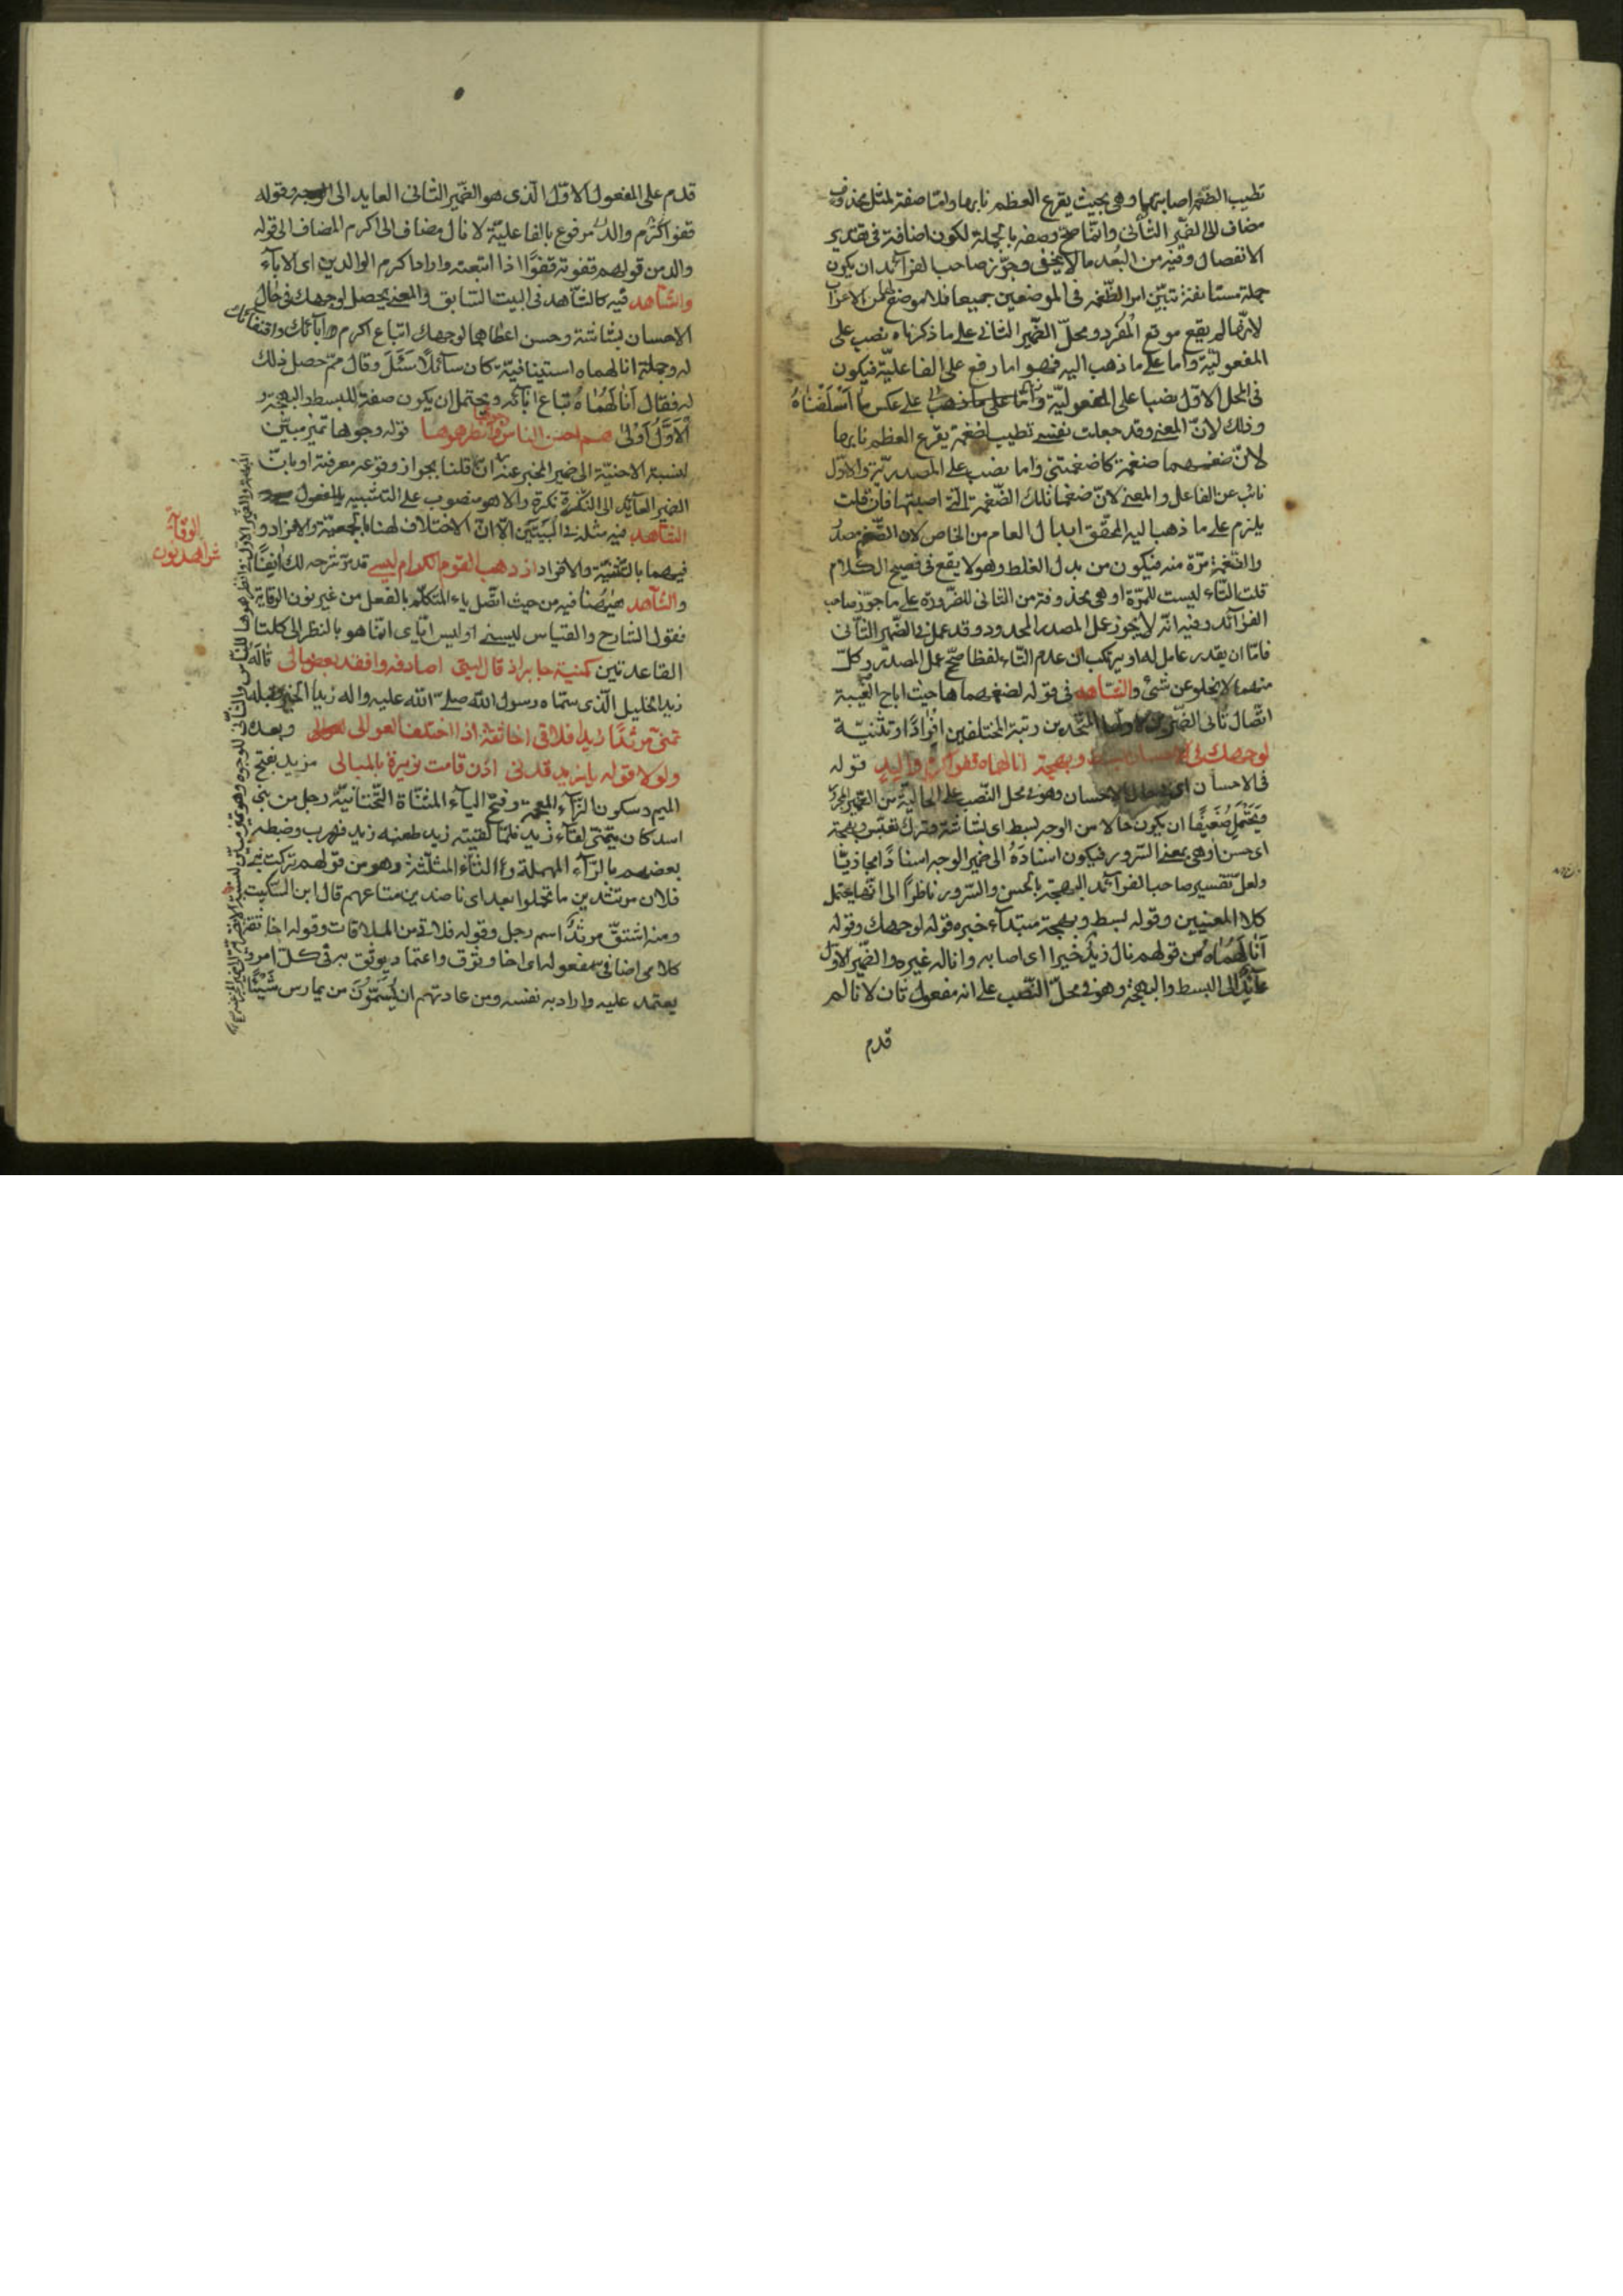 تطيب الضغمة اصابتهما وهي بحيث يقرع العظم نابها واما صفة لمثل محذوف
مضاف الى الضمير الثانى وانما صح وصفه بالجملة لكون اضافته فى تقدير
الانفصال وفيه من البعد ما لا يخفى وجوز صاحب الفرائد ان يكون
جملة مستانفة تبين امر الضغمة فى الموضعين جميعا فلا موضع لها من الاعراب
لانها لم يقع موقع المفرد ومحل الضمير الثانى على ما ذكرناه نصب على
المفعولية واما على ما ذهب اليه فهو اما رفع على الفاعلية فيكون
فى المحل الاول نصبا على المفعولية على عكس ما اسلفناه
وذلك لان المعنى وقد جعلت نفسى تطيب لضغمة يقرع العظم نابها
لان ضغمهما ضغمة كاضغمتنى واما نصب على المصدرية والاول
نائب عن الفاعل والمعنى لان ضغما تلك الضغمة التى اصبتها فان قلت
يلزم على ما ذهب اليه المحقق ابدال العام من الخاص لان الضغم مصدر
والضغمة مرة منه فيكون من بدل الغلط وهو لا يقع فى فصيح الكلام
قلت التاء ليست للمرة او هى محذوفة من الثانى للضرورة على ما جوز صاحب
الفرائد وفيه انه لا يجوز عمل المصدر المحدود وقد عمل فى الضمير الثانى
فاما ان يقدر عامل له او يرتكب ان عدم التاء لفظا صحح عمل المصدر وكل
منهما لا يخلو عن شئ والشاهد فى قوله لضغمهماها حيث اباح الغيبة
اتصال ثانى الضميرين المتحدين رتبة المختلفين افرادا وتثنية
لوجهك فى الاحسان بسط وبهجة انالهماه قفو اكرم والد قوله
فى الاحسان اى فى حال الاحسان وهو فى محل النصب على الحالية من الضمير المجرور
ويحتمل ضعيفا ان يكون حالا من الوجه بسط اى بشاشة وترك تعبس وبهجة
اى حسن او هى بمعنى السرور فيكون اسناده الى ضمير الوجه اسنادا مجازيا
ولعل تفسير صاحب الفرائد البهجة بالحسن والسرور ناظرا الى انها يحتمل
كلا المعنيين وقوله بسط وبهجة مبتداء خبره قوله لوجهك وقوله
انالهماه من قولهم نال زيد خيرا اى اصابه واناله غيره والضمير الاول
عائد الى البسط والبهجة وهو فى محل النصب على انه مفعول ثان لانا لم
قدم
قدم على المفعول الاول الذى هو الضمير الثانى العايد الى الوجه وقوله
قفو اكرم والد مرفوع بالفاعلية لانال مضاف الى اكرم المضاف الى قوله
والد من قولهم قفوته قفوا اذا اتبعته واراد اكرم الوالدين اى الاباء
والشاهد فيه كالشاهد فى البيت السابق والمعنى يحصل لوجهك فى حال
الاحسان بشاشة وحسن اعطاهما لوجهك اتباع اكرم آبائك واقتفائك
له وجملة انالهماه استينافية كان سائلا سئل وقال مم حصل ذلك
له فقال انالهماه اتباع ابائه ويحتمل ان يكون صفة للبسط والبهجة و
الاول اولى هم احسن الناس وجوها وانضرهموها قوله وجوها تميز مبين
لنسبة الاحنية الى ضمير المخبر عنه ان قلنا بجواز وقوعه معرفة او بان
الضمير العائد الى النكرة نكرة والا هو منصوب على التشبيه بالمفعول
الشاهد فيه مثله فى البيتين الا ان الاختلاف لهنا بالجمعية والافراد و
فيهما بالتثنية والافراد اذ ذهب القوم الكرام ليسى قد مر شرحه لك انفا
والشاهد هيهنا فيه من حيث اتصل ياء المتكلم بالفعل من غير نون الوقاية
فقول الشارح والقياس ليسنى او ليس اياى انما هو بالنظر الى كلتا
القاعدتين كمنية جابر اذ قال ليتى اصادفه وافقد بعض مالى قاله
زيد الخليل الذى سماه رسول الله صلى الله عليه واله زيد الخير قبله
تمنى مزيد زيدا فلاقى اخا ثقة اذا اختلف العوالى وبعده
ولولا قوله يا زيد قدنى اذن قامت نويرة بالمبالى مزيد بفتح
الميم وسكون الزاء المعجمة وفتح الياء المثناة التحتانية رجل من بنى
اسد كان يتمنى لقاء زيد فلما لقيته زيد طعنه زيد فهرب وضبطه
بعضهم بالراء المهملة والثاء المثلثة وهو من قولهم تركت بنى
فلان مرتثدين ما تحملوا بعد اى ناضدين متاعهم قال ابن السكيت
ومنه اشتق مرثد اسم رجل وقوله فلاقى من الملاقات وقوله اخا ثقة
كلامى اضافى مفعوله اى اخا وثوق واعتماد يوثق به فى كل امر و
يعتمد عليه واراد به نفسه ومن عادتهم ان يسموا من يمارس شيئا
الوقاية